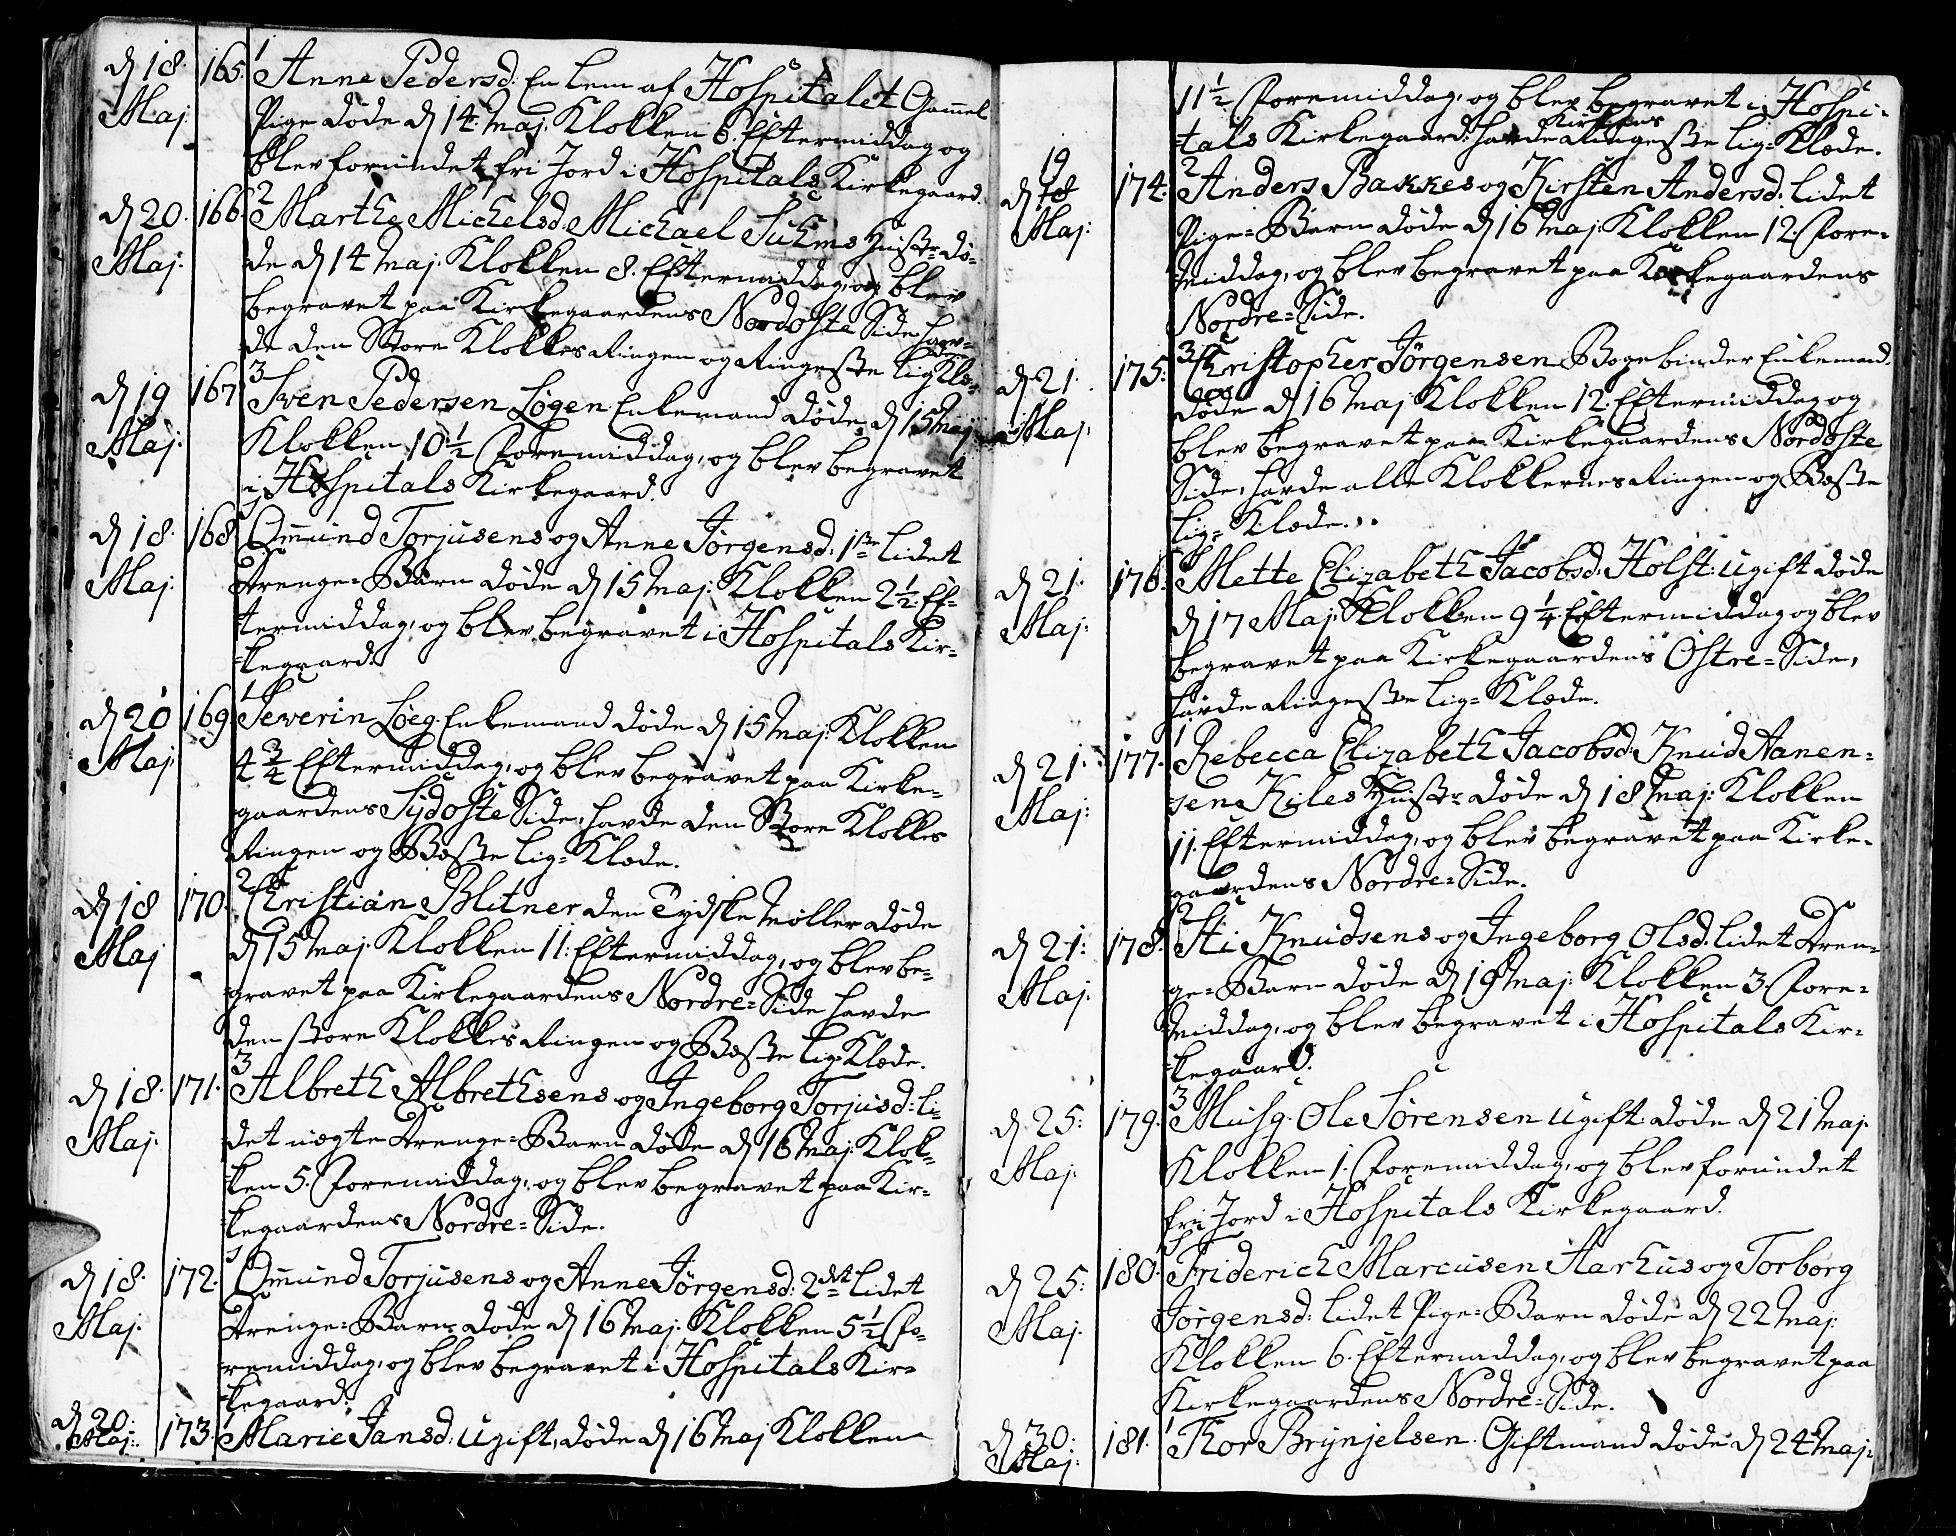 d 18. 165. 1 Anne Pedersd: En Lem af Hospitalet Gamel
Maj Pige døde d 14 Maj. Klokken 6. Eftermiddag og
blev forundet fri Jord i Hospitals Kirkegaard.
d 20. 166. 2 Marthe Michelsd: Michael Suhms Hustr: dø-
Maj: de d 14 Maj. Klokken 8. Eftermiddag, og blev
begravet paa Kirkegaardens Nordoste Side, hav-
de den Store Klokkes Ringen og Ringeste lig Klæ-
d 19 167 3 Sven Pedersen Løgen Enkemand døde d 15 Maj
Maj: Klokken 10 1/2 Formiddag, og blev begravet
i Hospitals Kirkegaard.
d 18. 168 Omund Torjusens og Anne Jørgensd: 1ste lidet
Maj: Drenge=Barn døde d 15 Maj: Klokken 2 1/2 Ef-
termiddag, og blev begravet i Hospitals Kir-
kegaard.
d 20 169 1 Severin Løeg Enkemand døde d 15 Maj: Klokken
Maj: 4 3/4 Eftermiddag, og blev begravet paa Kirke-
gaardens Sydoste Side, havde den Store Klokkes
Ringen og Beste lig=Klæde.
d 18 170. 2 Christian Blitner den Tydske Møller døde
Maj d 15 Maj: Klokken 11: Eftermiddag, og blev be-
gravet paa Kirkegaardens Nordre=Side havde
den store Klokkes Ringen og Beste lig Klæde.
d 18. 171. 3 Albreth Albrethsens og Ingeborg Torjusd: li-
Maj: det uægte Drenge=Barn døde d 16 Maj: Klok-
ken 5. Foremiddag, og blev begravet paa Kir-
kegaardens Nordre=Side.
d 18. 172. Omund Torjusens og Anne Jørgensd: 2det lidet
Maj: Drenge=Barn døde d 16 Maj: Klokken 5 1/2 Fo-
remiddag, og blev begravet i Hospitals Kir-
kegaard.
d 20: Maj: 173. 1 Marie Jansd: Ugift, døde d 16 Maj Klokken
11 1/2 Foremiddag, og blev begravet i Hospi-
tals Kirkegaard. havde Kirkens Ringeste lig=Klæde.
d 19 Maj: 174. 2 Anders Bakkes og Kirsten Andersd: lidet
Pige=Barn døde d 16 Maj: Klokken 12. Fore-
middag, og blev begravet paa Kirkegaardens
Nordre=Side.
d 21. 175. 3 Christopher Jørgensen Bogebinder Enkemand
Maj. døde d 16 Maj Klokken 12. Eftermiddag og
blev begravet paa Kirkegaardens Nordoste
Side, havde alle Klokkernes Ringen og Beste
lig=Klæde.
d 21. 176. Mette Elizabeth Jacobsd: Holst: Ugift døde
Maj: d 17 Maj: Klokken 9 1/4 Eftermiddag og blev
begravet paa Kirkegaardens Östre=Side,
havde Ringeste lig=Klæde.
d 21. 177. 1 Rebecca Elizabeth Jacobsd: Knud Aanen-
Maj: sen Kiles Hustr: døde d 18 Maj: Klokken
11. Eftermiddag, og blev begravet paa Kirke-
gaardens Nordre=Side.
d 21: 178. 2 Sti Knudsens og Ingeborg Olsd: lidet Dren-
Maj: ge=Barn døde d 19 Maj: Klokken 3. Fore-
middag, og blev begravet i Hospitals Kir-
kegaard.
d 25: 179. 3 Musq. Ole Sørensen Ugift døde d 21 Maj.
Maj. Klokken 1. Foremiddag, og blev forundet
fri Jord i Hospitals Kirkegaard.
d 25: 180. Friderich Marcusen Aarhus og Torborg
Maj: Jørgensd: lidet Pige=Barn døde d 22 Maj:
Klokken 6. Eftermiddag, og blev begravet paa
Kirkegaardens Nordre=Side.
d 30: Maj: 181. 1 Thor Brynjelsen. Giftmand døde d 24 Maj: